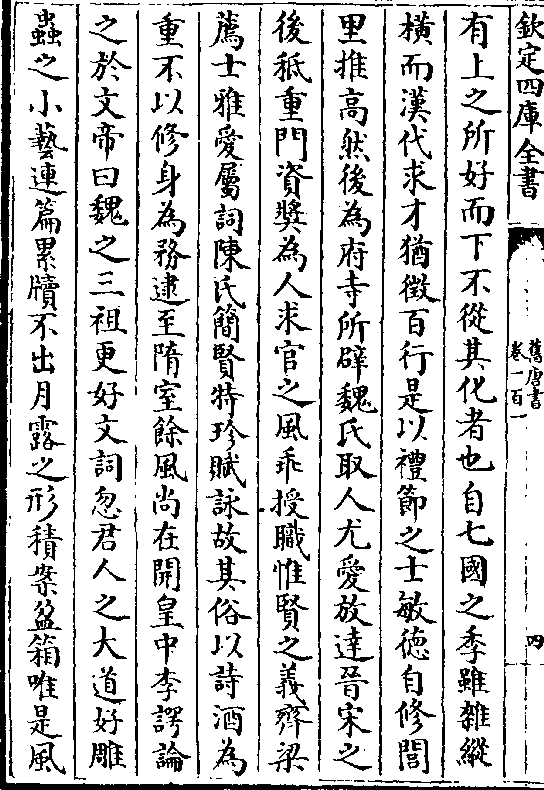 欽定四庫全書
舊唐書
卷一百一
四
有上之所好而下不從其化者也自七國之季雖雜縱
橫而漢代求才猶徵百行是以禮節之士敏德自修閭
里推高然後為府寺所辟魏氏取人尤愛放達晉宋之
後秪重門資奬為人求官之風乖授職惟賢之義齊梁
薦士雅愛屬詞陳氏簡賢特珍賦詠故其俗以詩酒為
重不以修身為務逮至隋室餘風尚在開皇中李諤論
之於文帝曰魏之三祖更好文詞忽君人之大道好雕
蟲之小藝連篇累牘不出月露之形積案盈箱唯是風